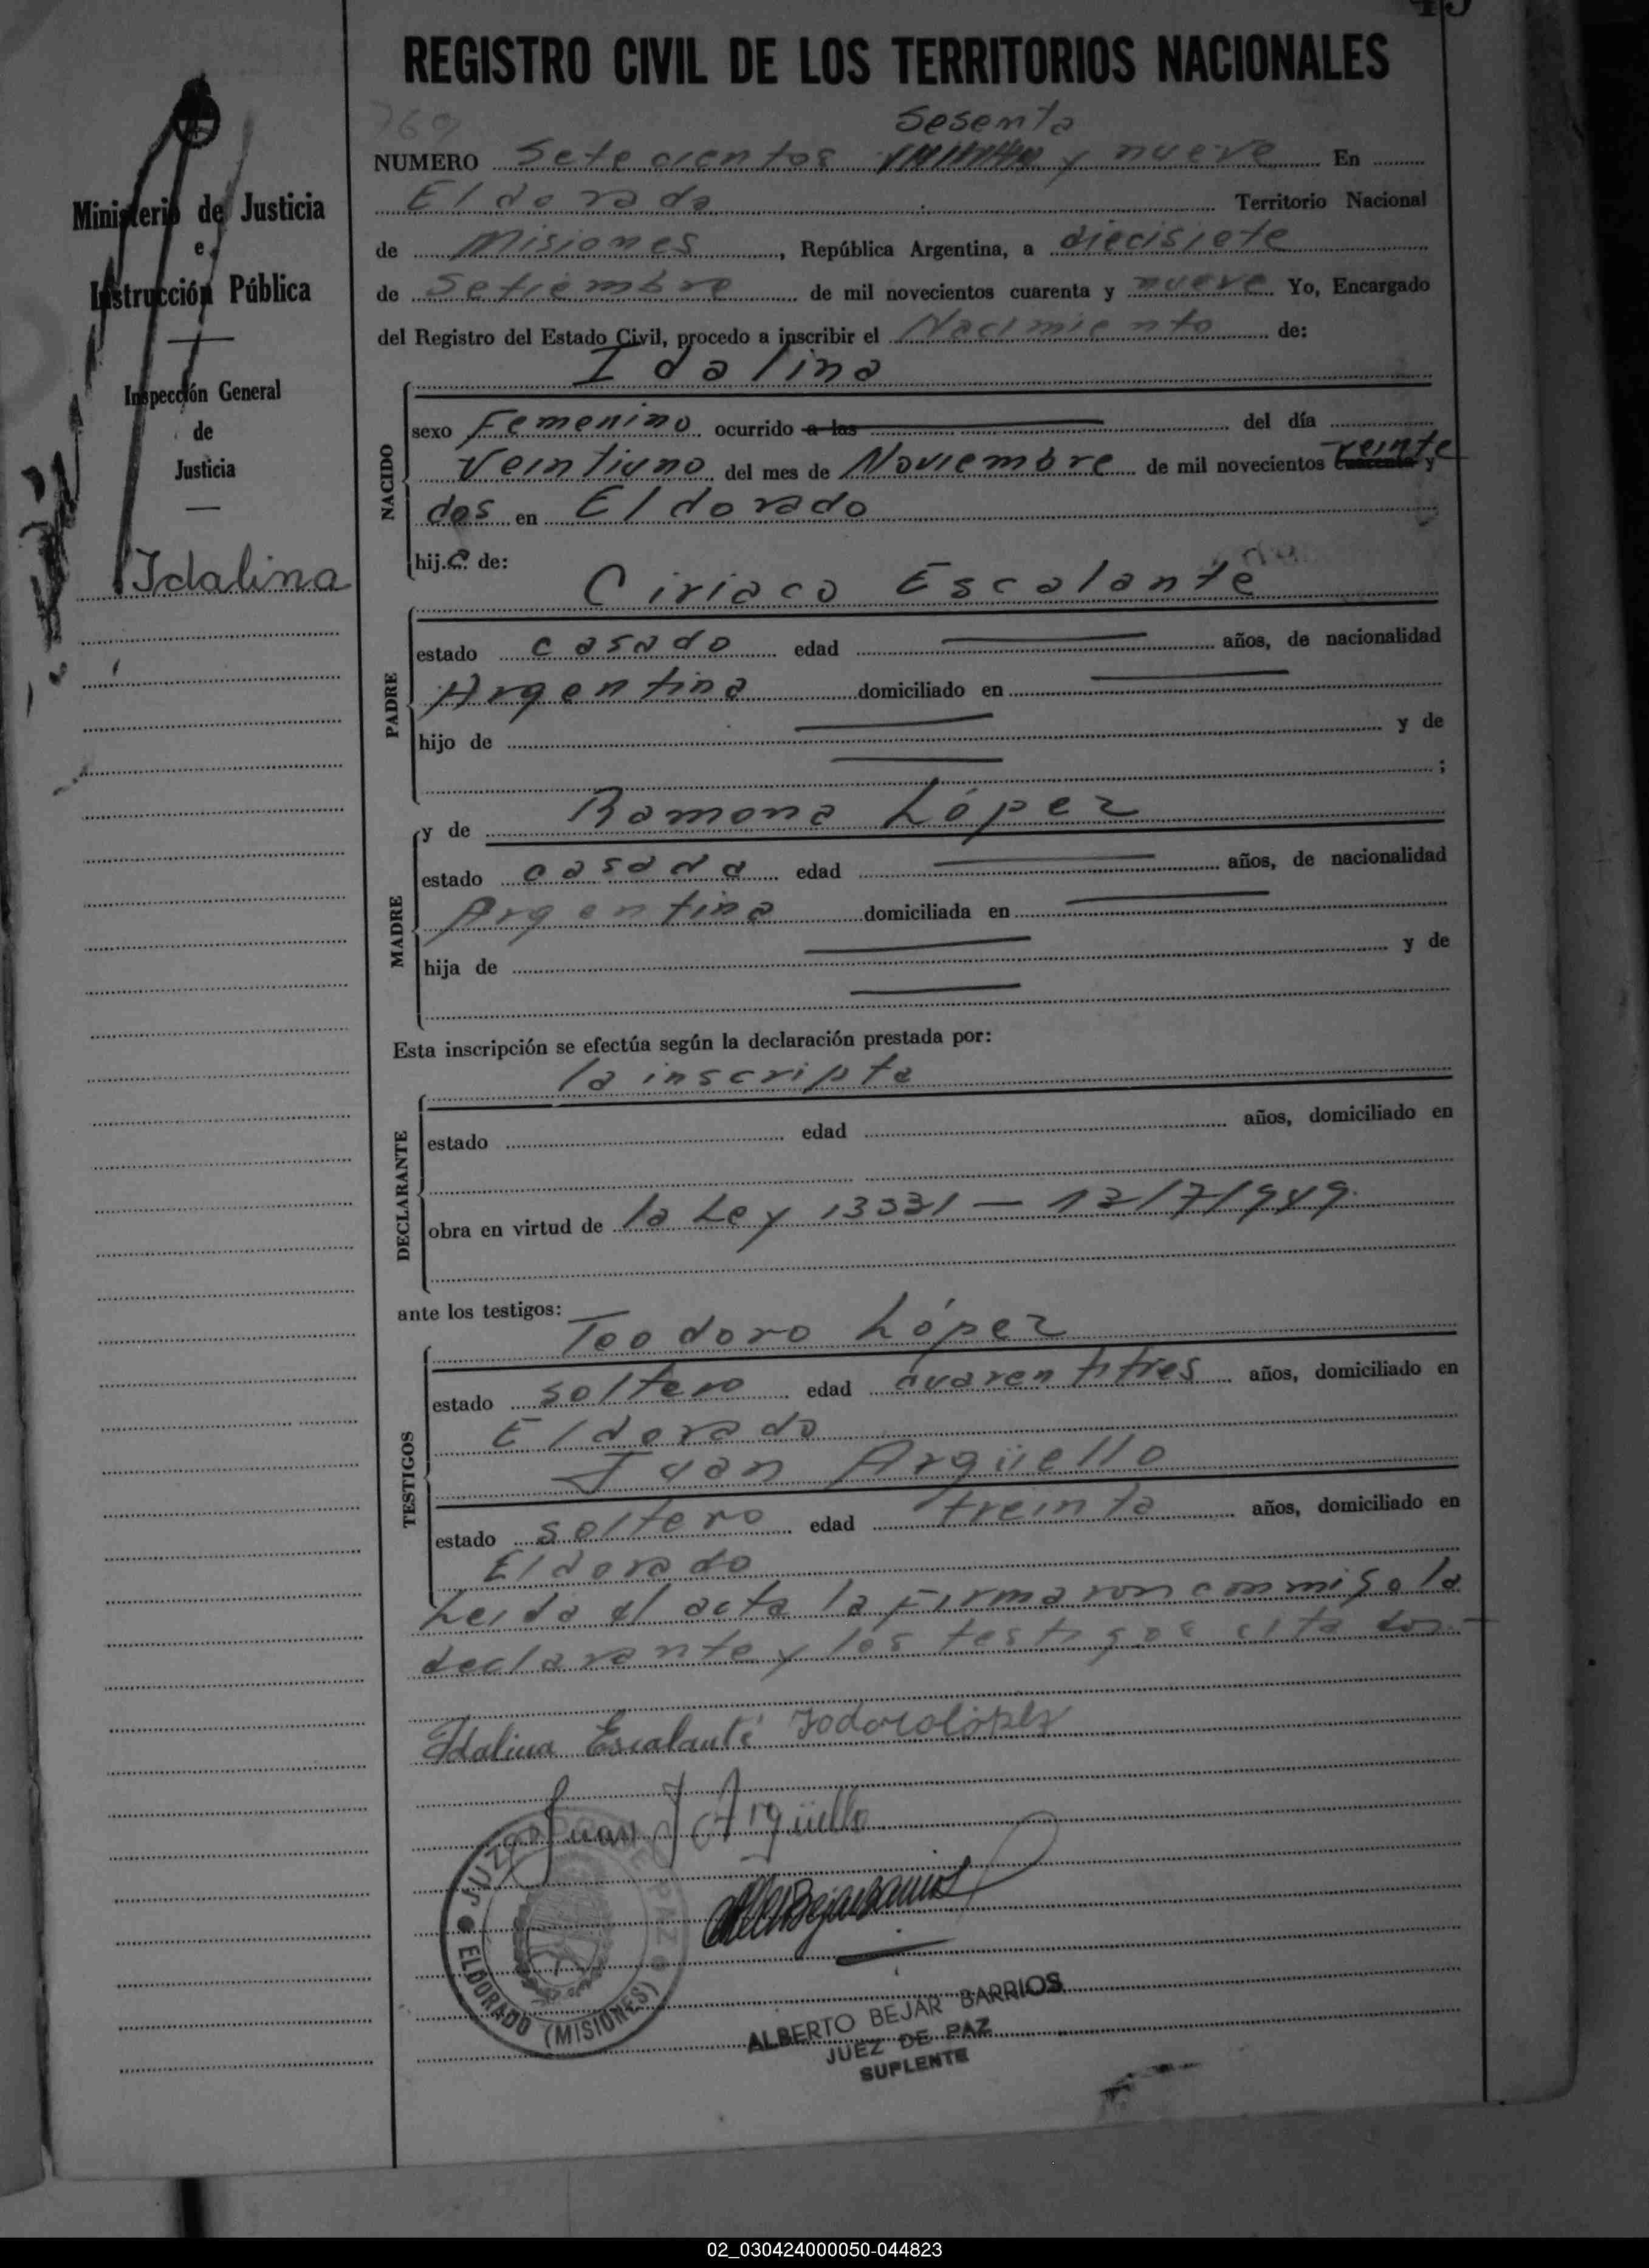 45
REGISTRO CIVIL DE LOS TERRITORIOS NACIONALES
769
Sesenta
NUMERO Setecientos y nueve En
Eldorado Territorio Nacional
de Misiones, República Argentina, a diecisiete
de Setiembre de mil novecientos cuarenta y nueve Yo, Encargado
del Registro del Estado Civil, procedo a inscribir el Nacimiento de:
Ministerio de Justicia
e
Instrucción Pública
Inspección General
de
Justicia
Idalina
Idalina
NACIDO
sexo Femenino ocurrido a las del día
Veintiuno del mes de Noviembre de mil novecientos cuarenta veinte y
dos en Eldorado
hij.a de:
Ciriaco Escalante
PADRE
estado casado edad años, de nacionalidad
Argentina domiciliado en
hijo de y de
;
MADRE
y de Ramona López
estado casada edad años, de nacionalidad
Argentina domiciliada en
hija de y de
Esta inscripción se efectúa según la declaración prestada por:
la inscripta
DECLARANTE
estado edad años, domiciliado en
obra en virtud de la Ley 13331 — 13/7/949
ante los testigos:
Teodoro López
TESTIGOS
estado soltero edad cuarentitres años, domiciliado en
Eldorado
Juan Argüello
estado soltero edad treinta años, domiciliado en
Eldorado
Leida el acta la firmaron conmigo la
declarante y los testigos citados.—
Idalina Escalante Todorolópez
Juan J Argüello
JUZGADO DE PAZ
ELDORADO (MISIONES)
ALBERTO BEJAR BARRIOS
JUEZ DE PAZ
SUPLENTE
02_030424000050-044823